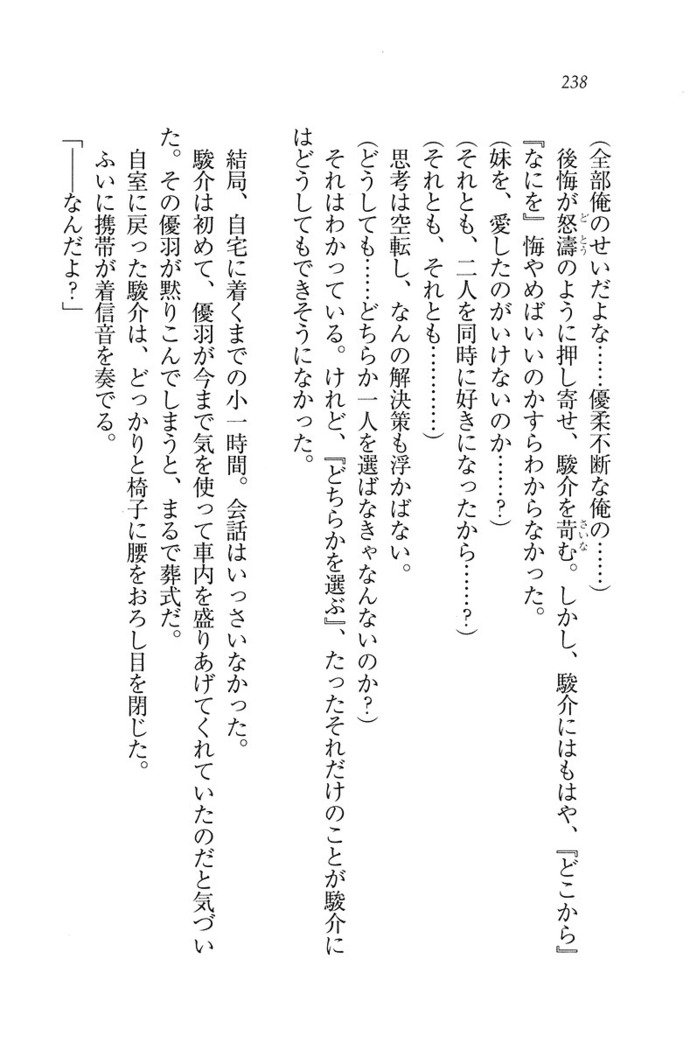 238
(全部俺のせいだよな……優柔不断な俺の……)
後悔が怒濤のように押し寄せ、駿介を苛む。しかし、駿介にはもはや、『どこから』
『なにを』悔やめばいいのかすらわからなかった。
(妹を、愛したのがいけないのか……?)
(それとも、二人を同時に好きになったから……?)
(それとも、それとも…………)
思考は空転し、なんの解決策も浮かばない。
(どうしても……どちらか一人を選ばなきゃなんないのか?)
それはわかっている。けれど、『どちらかを選ぶ』、たったそれだけのことが駿介に
はどうしてもできそうになかった。
結局、自宅に着くまでの小一時間。会話はいっさいなかった。
駿介は初めて、優羽が今まで気を使って車内を盛りあげてくれていたのだと気づい
た。その優羽が黙りこんでしまうと、まるで葬式だ。
自室に戻った駿介は、どっかりと椅子に腰をおろし目を閉じた。
ふいに携帯が着信音を奏でる。
「――なんだよ?」